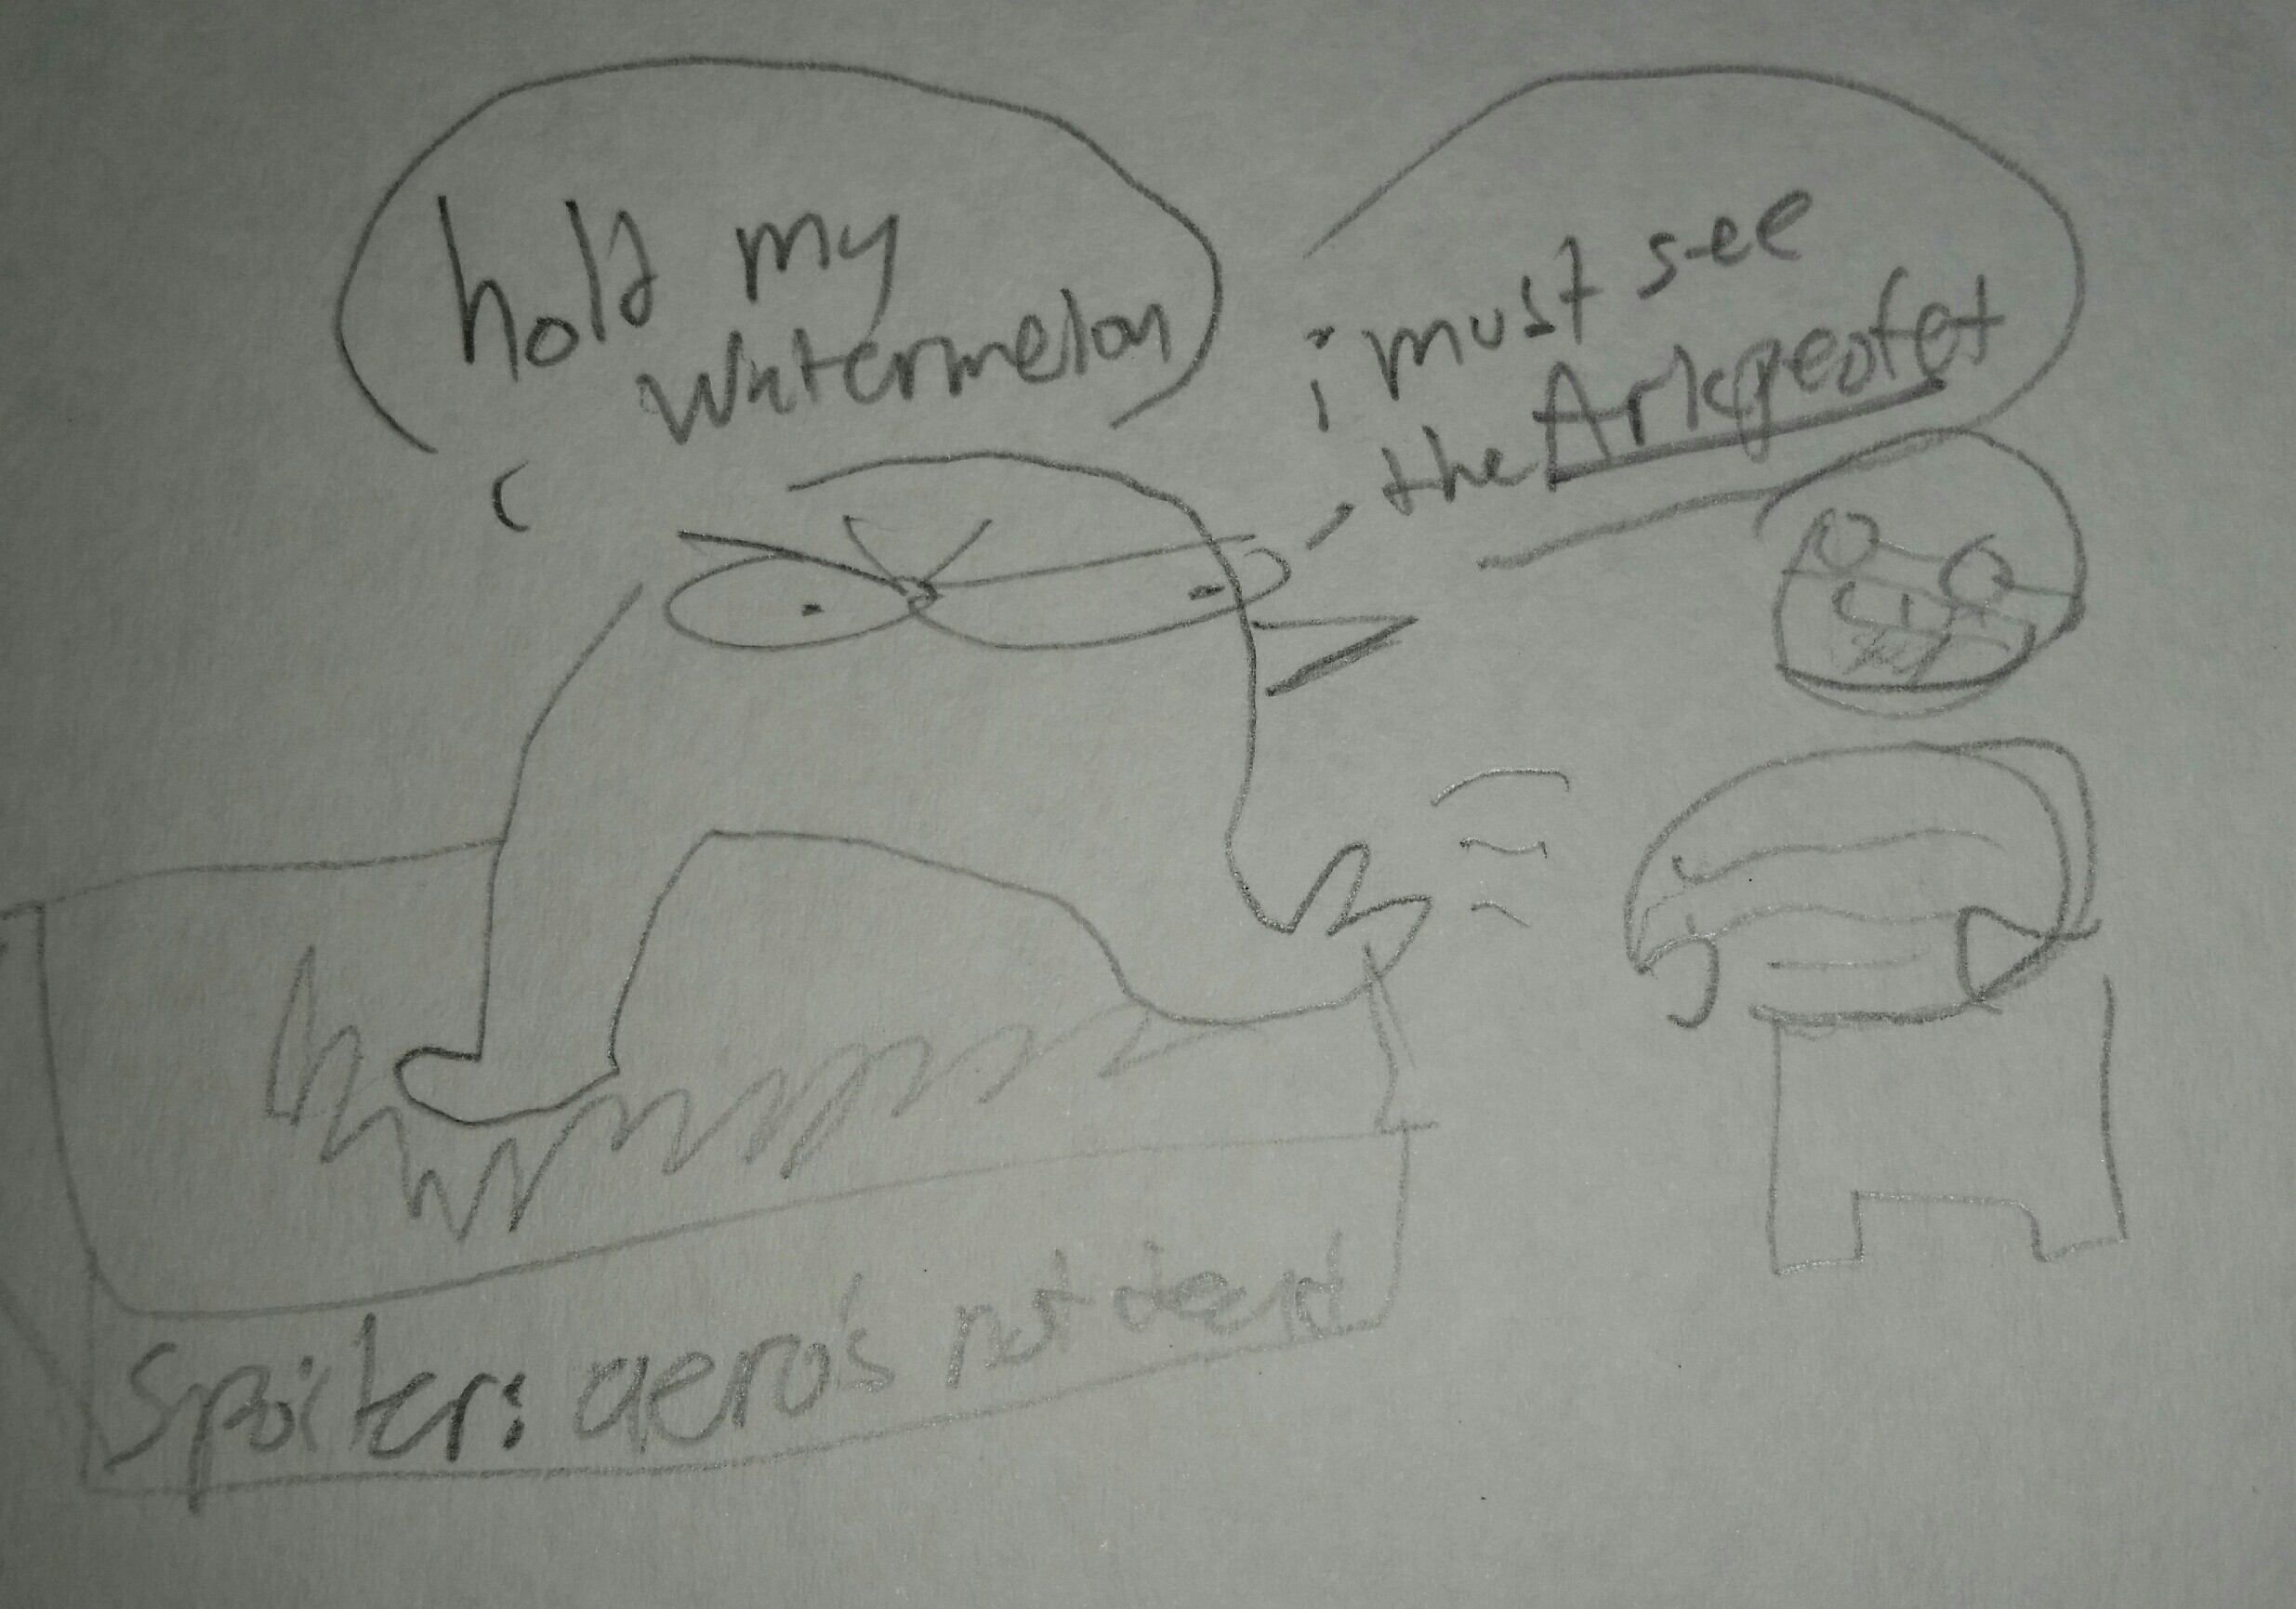 hold my
watermelon
i must see
the Arkpeofet
Spoiler: aero's not dead